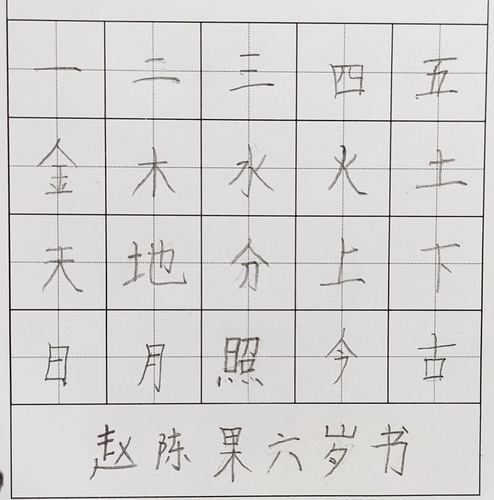 一二三四五
金木水火土
天地分上下
日月照今古
赵陈果六岁书